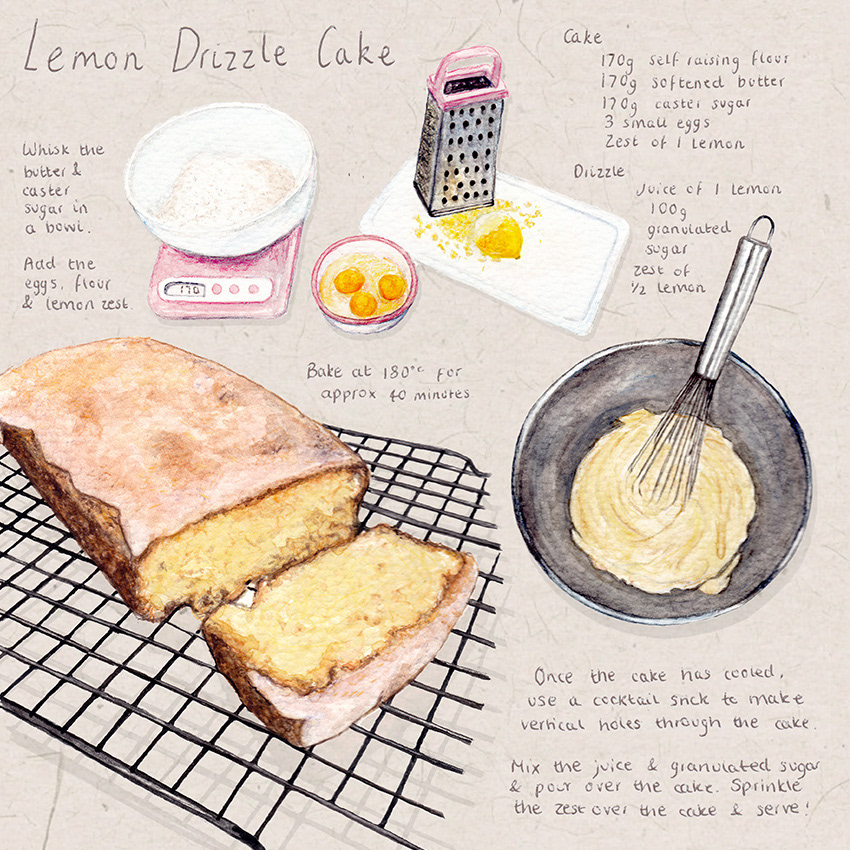 Lemon Drizzle Cake
Cake
170g self raising flour
170g softened butter
170g caster sugar
3 small eggs
Zest of 1 lemon
Drizzle
Juice of 1 lemon
100g
granulated
sugar
zest of
1/2 lemon
Whisk the
butter &
caster
sugar in
a bowl.
Add the
eggs, flour
& lemon zest.
170
Bake at 180°c for
approx 40 minutes
Once the cake has cooled,
use a cocktail stick to make
vertical holes through the cake.
Mix the juice & granulated sugar
& pour over the cake. Sprinkle
the zest over the cake & serve!